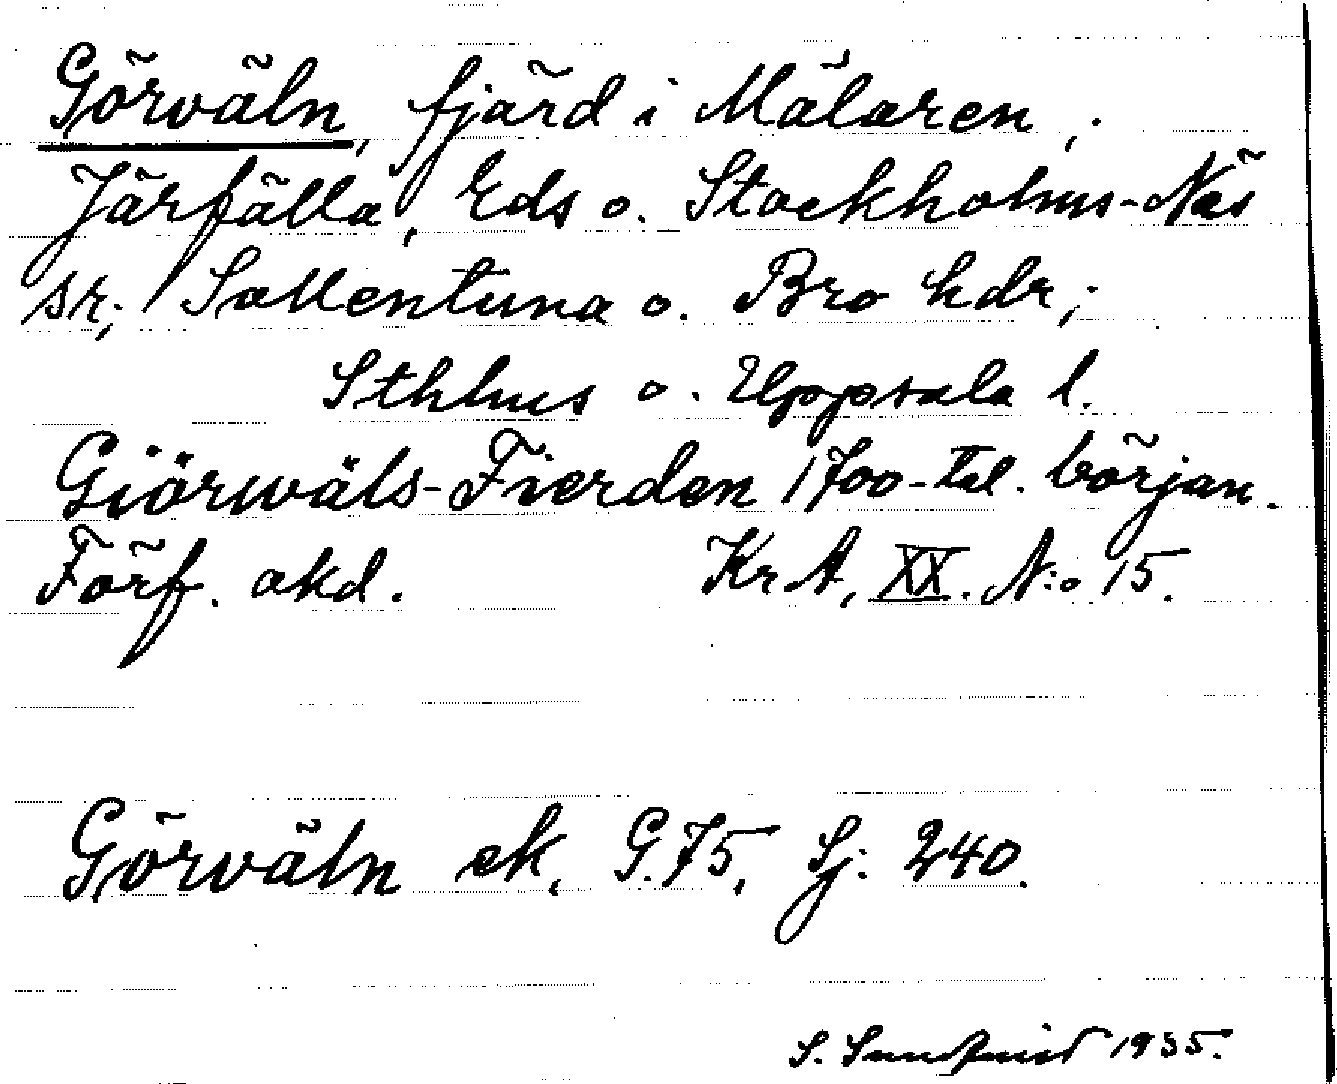 Görväln, fjärd i Mälaren,.
Järfälla, Eds o. Stockholms-Näs
sr; Sollentuna o. Bro hdr;
Sthlms o. Uppsala l.
Giörwäls-Fierden 1700-tal. början.
Förf. okd. KrA, XX. N:o 15.
Görväln ek. G.75, Sj. 240.
S. Sundquist 1935.